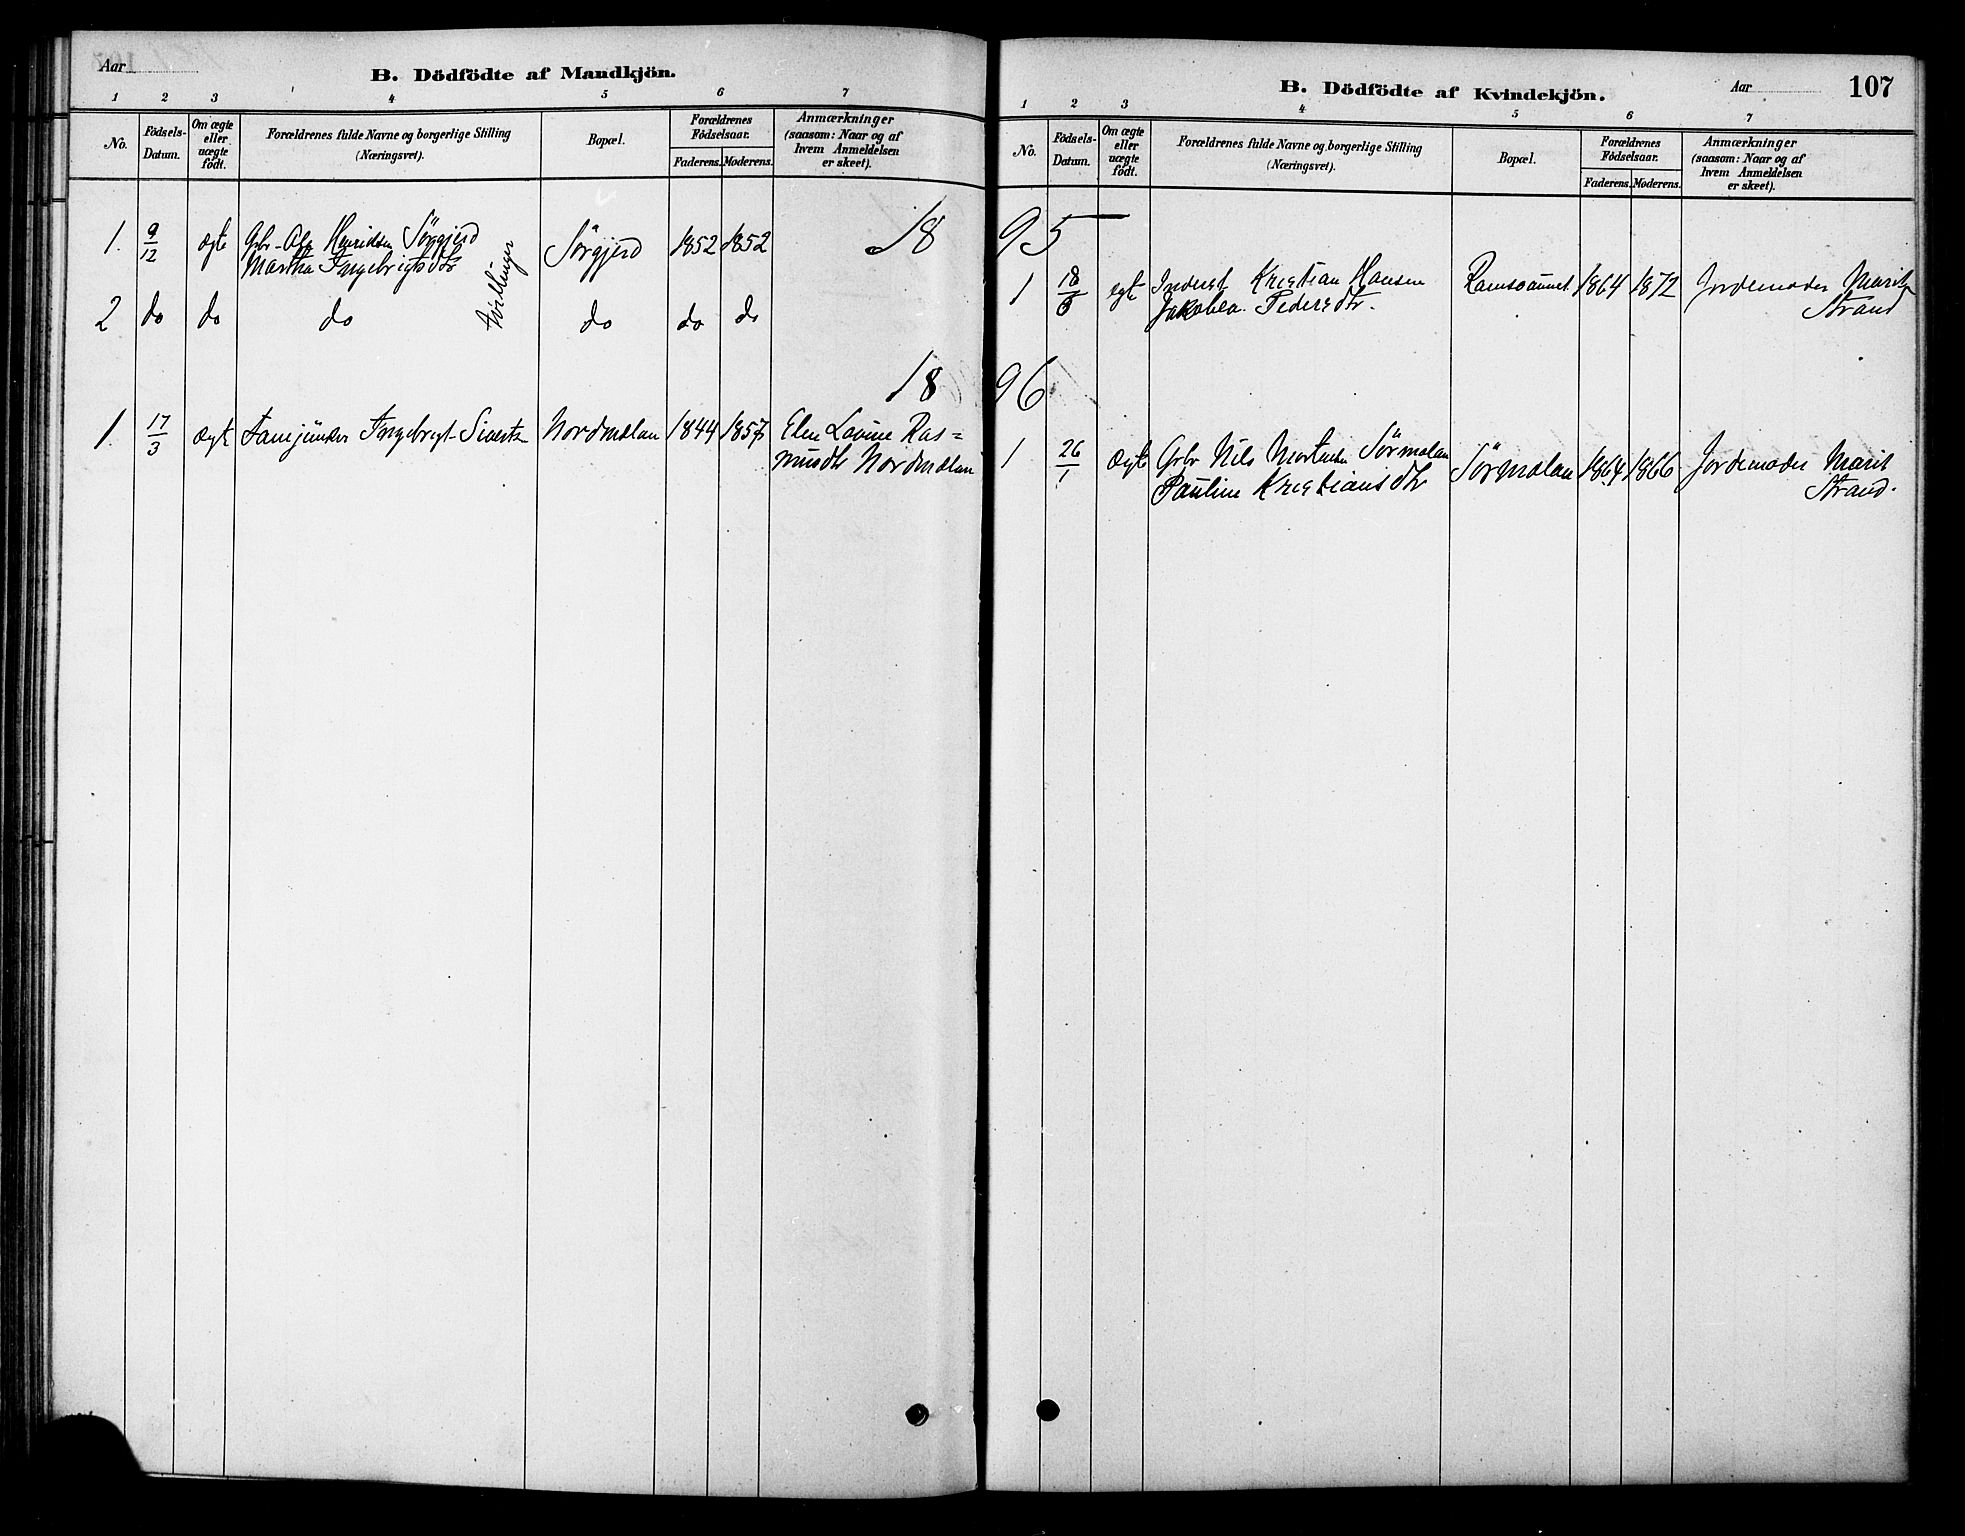 Aar
B. Dödfödte af Mandkjön.
1 2 3 4 5 6 7
No. Födsels-Datum. Om ægte eller uægte födt. Forældrenes fulde Navne og borgerlige Stilling (Næringsvei). Bopæl. Forældrenes Födselsaar. Faderens. Moderens. Anmærkninger (saasom: Naar og af hvem Anmeldelsen er skeet).
18
1. 9/12 ægte Gbr. Henriksen Sörgjerd Sörgjerd 1852 1852
Martha Ingebrigtsdtr
Tvillinger
2 do do do do do do
18
1. 17/3 ægte Ingebrigt Nordmælan 1844 1857 Elen Lovine Ras=
musdtr Nordmælan
B. Dödfödte af Kvindekjön. Aar 107
1 2 3 4 5 6 7
No. Födsels-Datum. Om ægte eller uægte födt. Forældrenes fulde Navne og borgerlige Stilling (Næringsvei). Bopæl. Forældrenes Födselsaar. Faderens. Moderens. Anmærkninger (saasom: Naar og af hvem Anmeldelsen er skeet).
95
1 18/8 egte Inderst Kristian Hansen Ramsvannet 1864 1872 Jordemoder Marit
Jakobea Pedersdtr. Strand
96
1 26/1 Ægte Gbr Nils Sörmælan Sörmælan 1864 1866 Jordemoder Marit
Pauline Kristiansdtr Strand.